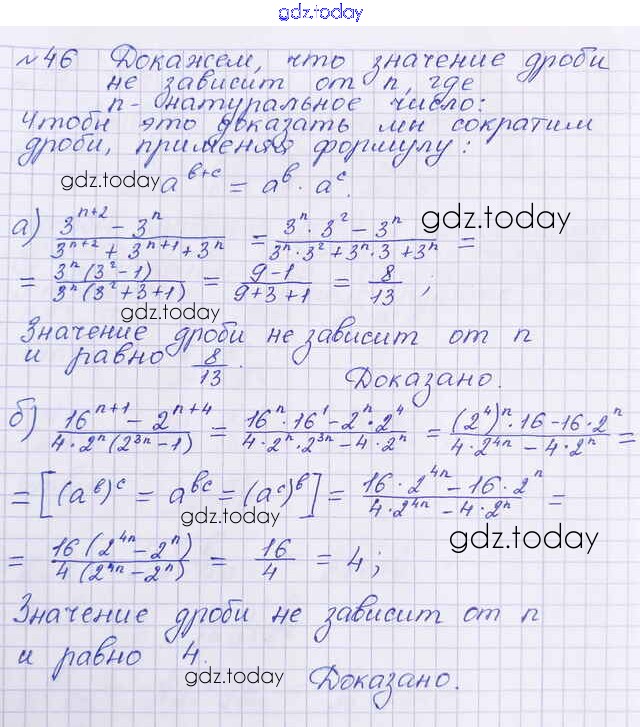 gdz.today
№46 Докажем, что значение дроби
не зависит от n, где
n - натуральное число:
Чтобы это доказать мы сократим
дроби, применяя формулу:
gdz.today a^(b+c) = a^b · a^c.
а) (3^(n+2) - 3^n)/(3^(n+2) + 3^(n+1) + 3^n) = (3^n · 3^2 - 3^n)/(3^n · 3^2 + 3^n · 3 + 3^n) = gdz.today
= (3^n (3^2 - 1))/(3^n (3^2 + 3 + 1)) = (9 - 1)/(9 + 3 + 1) = 8/13 ;
gdz.today
Значение дроби не зависит от n
и равно 8/13.
Доказано.
б) (16^(n+1) - 2^(n+4))/(4 · 2^n (2^(3n) - 1)) = (16^n · 16^1 - 2^n · 2^4)/(4 · 2^n · 2^(3n) - 4 · 2^n) = ((2^4)^n · 16 - 16 · 2^n)/(4 · 2^(4n) - 4 · 2^n) =
= [(a^b)^c = a^(bc) = (a^c)^b] = (16 · 2^(4n) - 16 · 2^n)/(4 · 2^(4n) - 4 · 2^n) =
gdz.today
= (16 (2^(4n) - 2^n))/(4 (2^(4n) - 2^n)) = 16/4 = 4; gdz.today
Значение дроби не зависит от n
и равно 4.
gdz.today
Доказано.